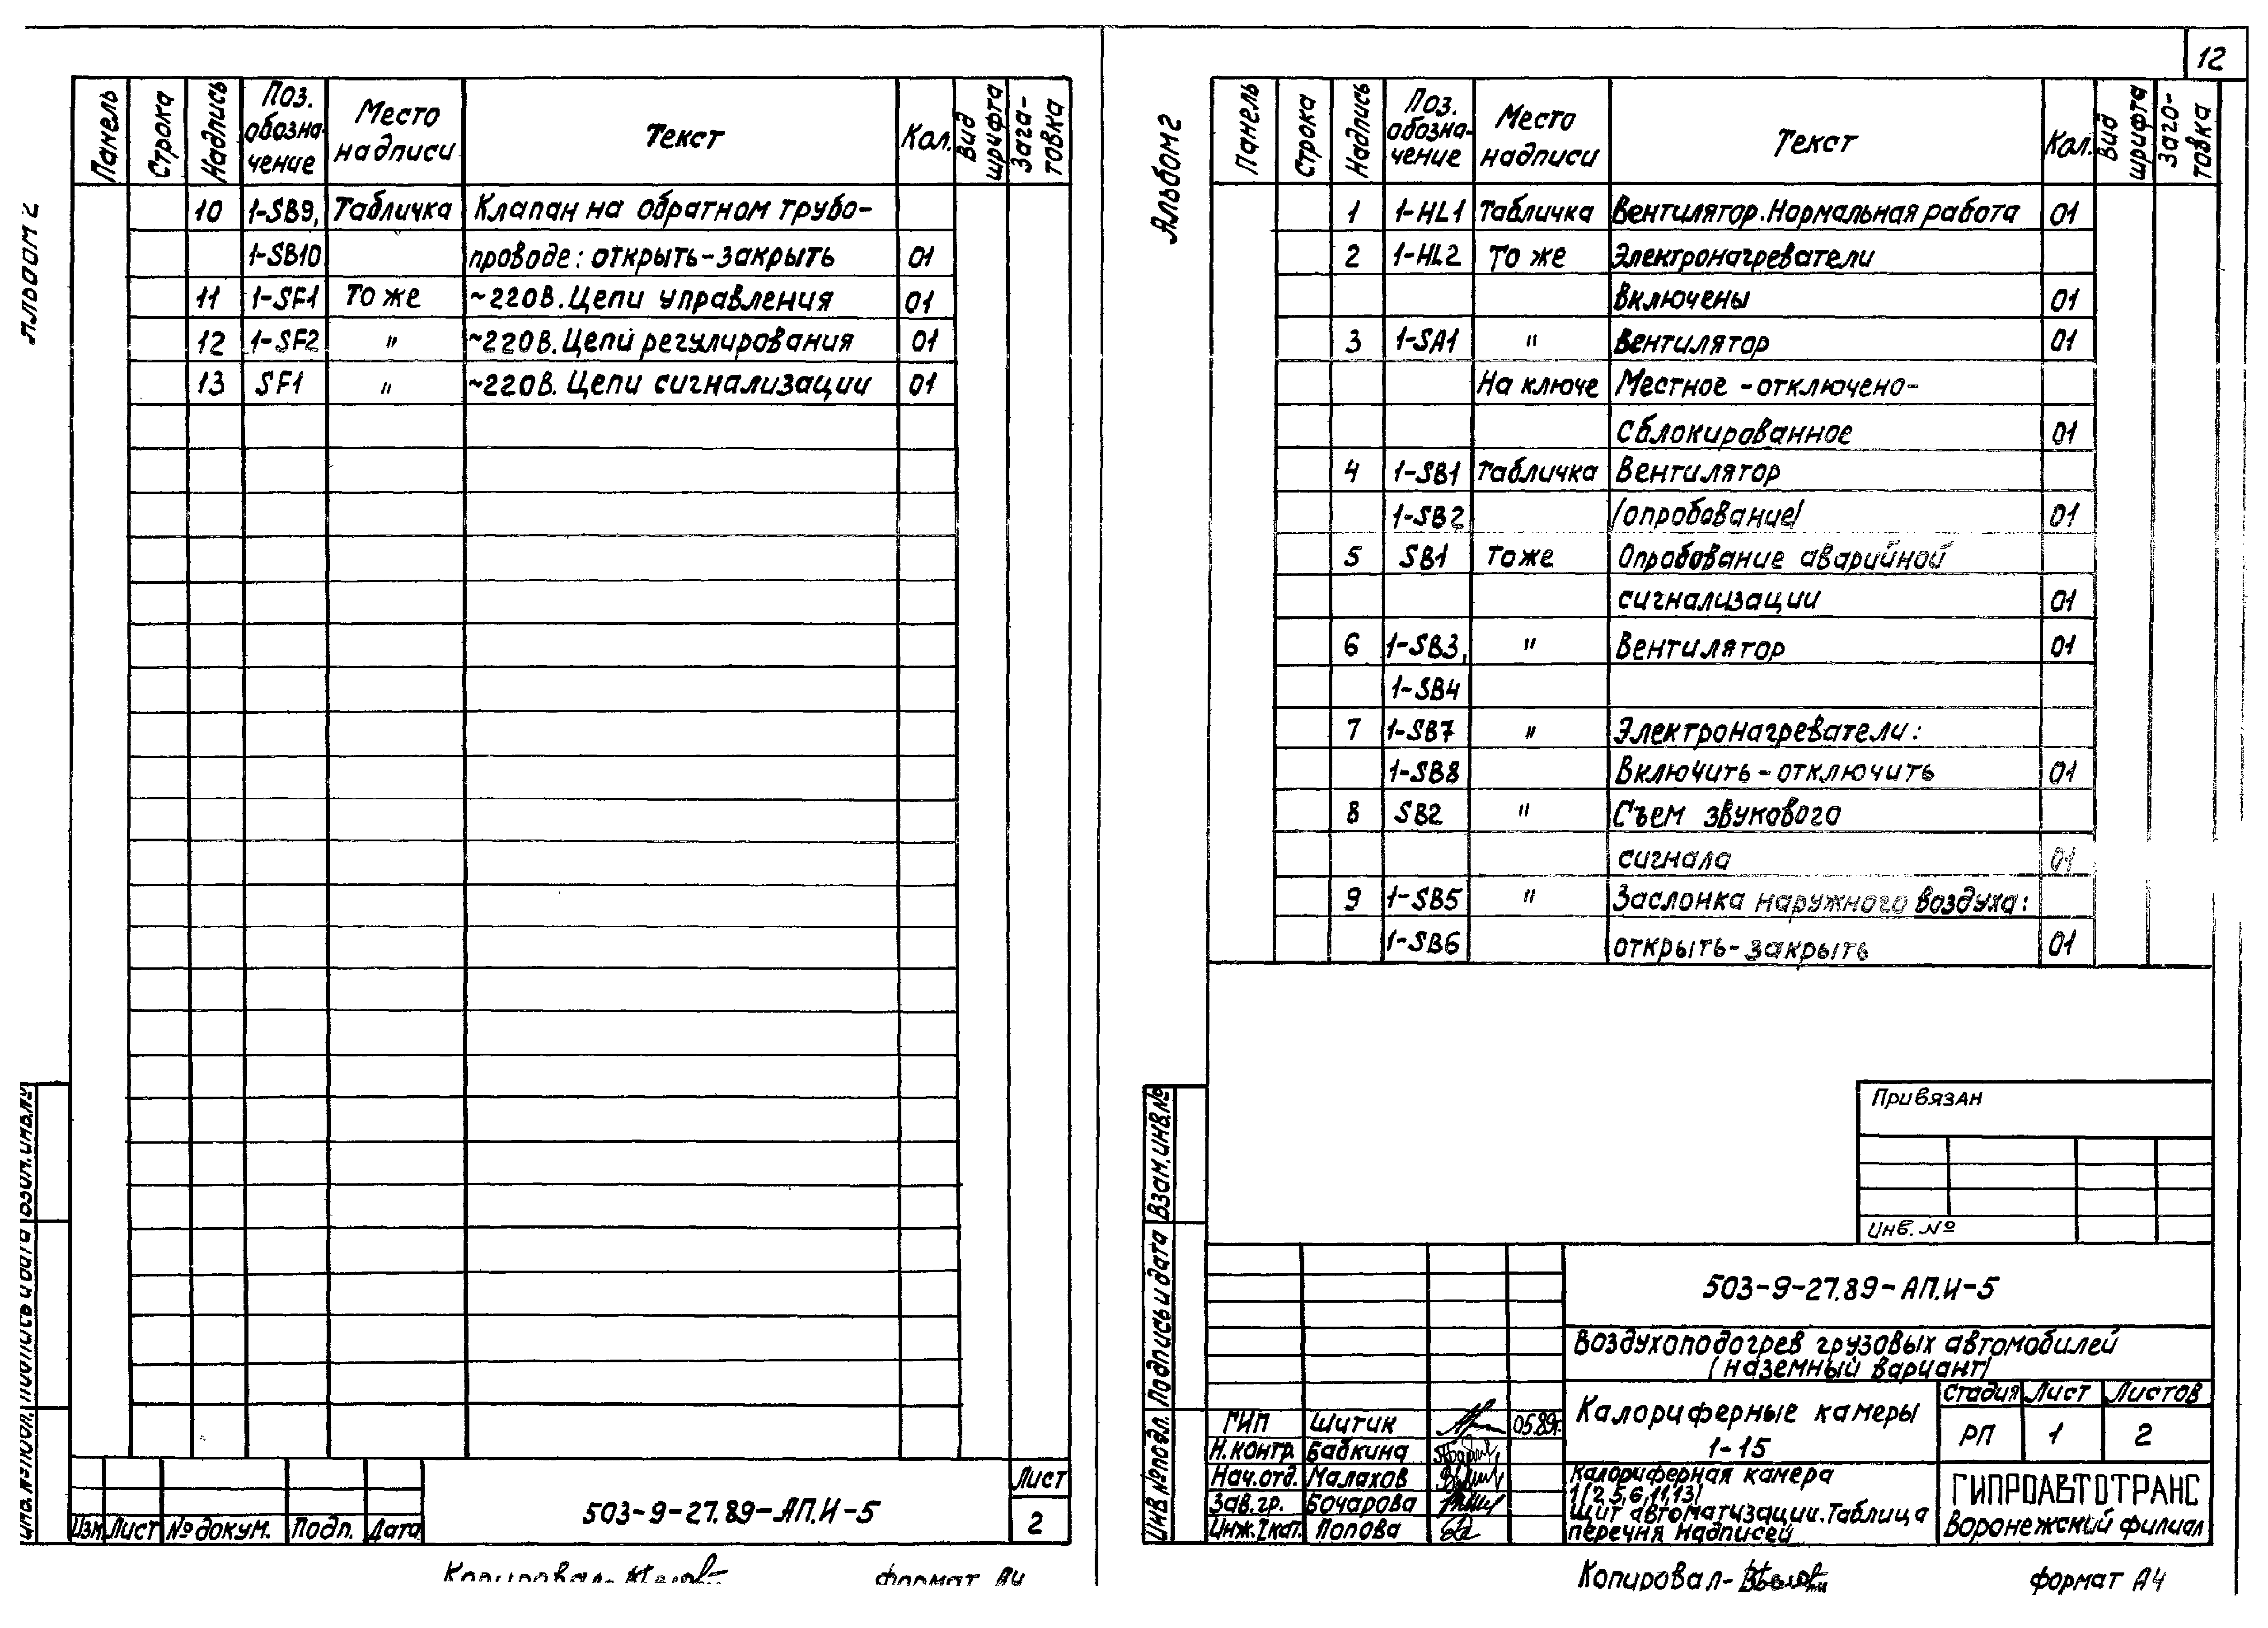 Альбом 2
Панель Строка Надпись Поз. обозна- чение Место надписи Текст Кол. Вид шрифта Зага- товка
10 1-SB9, Табличка Клапан на обратном трубо-
1-SB10 проводе: открыть-закрыть 01
11 1-SF1 То же ~220В. Цепи управления 01
12 1-SF2 " ~220В. Цепи регулирования 01
13 SF1 " ~220В. Цепи сигнализации 01
Инв. № подл. Подпись и дата Взам. инв. №
Изм. Лист № докум. Подп. Дата
503-9-27.89-АП.И-5
Лист
2
Копировал-
формат А4
12
Альбом 2
Панель Строка Надпись Поз. обозна- чение Место надписи Текст Кол. Вид шрифта Заго- товка
1 1-HL1 Табличка Вентилятор. Нормальная работа 01
2 1-HL2 То же Электронагреватели
включены 01
3 1-SA1 " Вентилятор 01
На ключе Местное - отключено-
Сблокированное 01
4 1-SB1 Табличка Вентилятор
1-SB2 /опробование/ 01
5 SB1 То же Опробование аварийной
сигнализации 01
6 1-SB3, " Вентилятор 01
1-SB4
7 1-SB7 " Электронагреватели:
1-SB8 Включить-отключить 01
8 SB2 " Съем звукового
сигнала 01
9 1-SB5 " Заслонка наружного воздуха:
1-SB6 открыть-закрыть 01
Привязан
Инв. №
Инв. № подл. Подпись и дата Взам. инв. №
503-9-27.89-АП.И-5
Воздухоподогрев грузовых автомобилей
/наземный вариант/
ГИП Шитик 05.89г.
Н. контр. Бабкина
Нач. отд. Малахов
Зав. гр. Бочарова
Инж. 2кат. Попова
Калориферные камеры
1-15
Стадия Лист Листов
РП 1 2
Калориферная камера
1(2,5,6,11,13)
Щит автоматизации. Таблица
перечня надписей
ГИПРОАВТОТРАНС
Воронежский филиал
Копировал-
формат А4